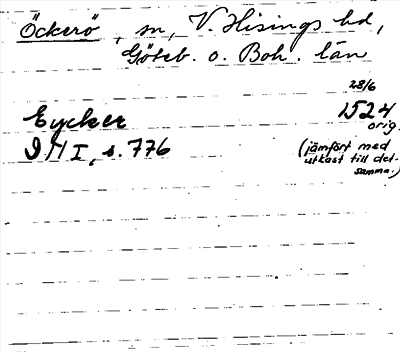 Öckerö, sn, V. Hisings hd,
Göteb. o. Boh. län
28/6
Eycker 1524
orig.
(jämfört med
utkast till det-
samma.)
DN I, s. 776